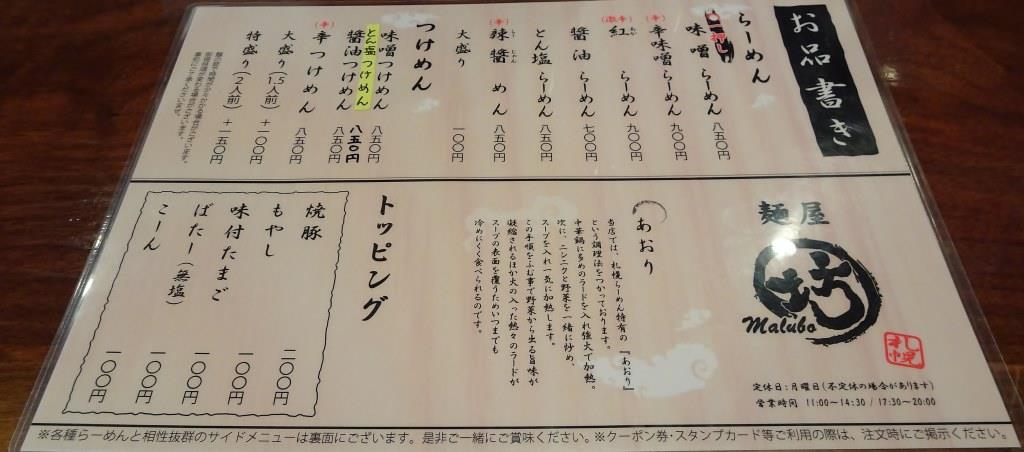 お品書き
らーめん
一押し
味噌らーめん 八五〇円
(辛)
辛味噌らーめん 九〇〇円
(激辛)
紅らーめん 九〇〇円
醤油らーめん 七〇〇円
とん塩らーめん 八五〇円
(辛)
辣醤めん 八五〇円
大盛り 一〇〇円
つけめん
味噌つけめん 八五〇円
とん塩つけめん 八五〇円
醤油つけめん 八五〇円
(辛)
辛つけめん 八五〇円
大盛り(1.5人前) +一〇〇円
特盛り(2人前) +一五〇円
麺屋
Malubo
札幌
定休日:月曜日(不定休の場合があります)
営業時間 11:00~14:30 / 17:30~20:00
あおり
当店では、札幌らーめん特有の『あおり』
という調理法をつかっております。
中華鍋に多めのラードを入れ強火で加熱。
次に、ニンニクと野菜を一緒に炒め、
スープを入れ一気に加熱します。
この手順をふむ事で野菜から出る旨味が
凝縮されるほか火の入った熱々のラードが
スープの表面を覆うためいつまでも
冷めにくく食べられるのです。
トッピング
焼豚 二〇〇円
もやし 一〇〇円
味付たまご 一〇〇円
ばたー(無塩) 一〇〇円
こーん 一〇〇円
※各種らーめんと相性抜群のサイドメニューは裏面にございます。是非ご一緒にご賞味ください。※クーポン券・スタンプカード等ご利用の際は、注文時にご掲示ください。